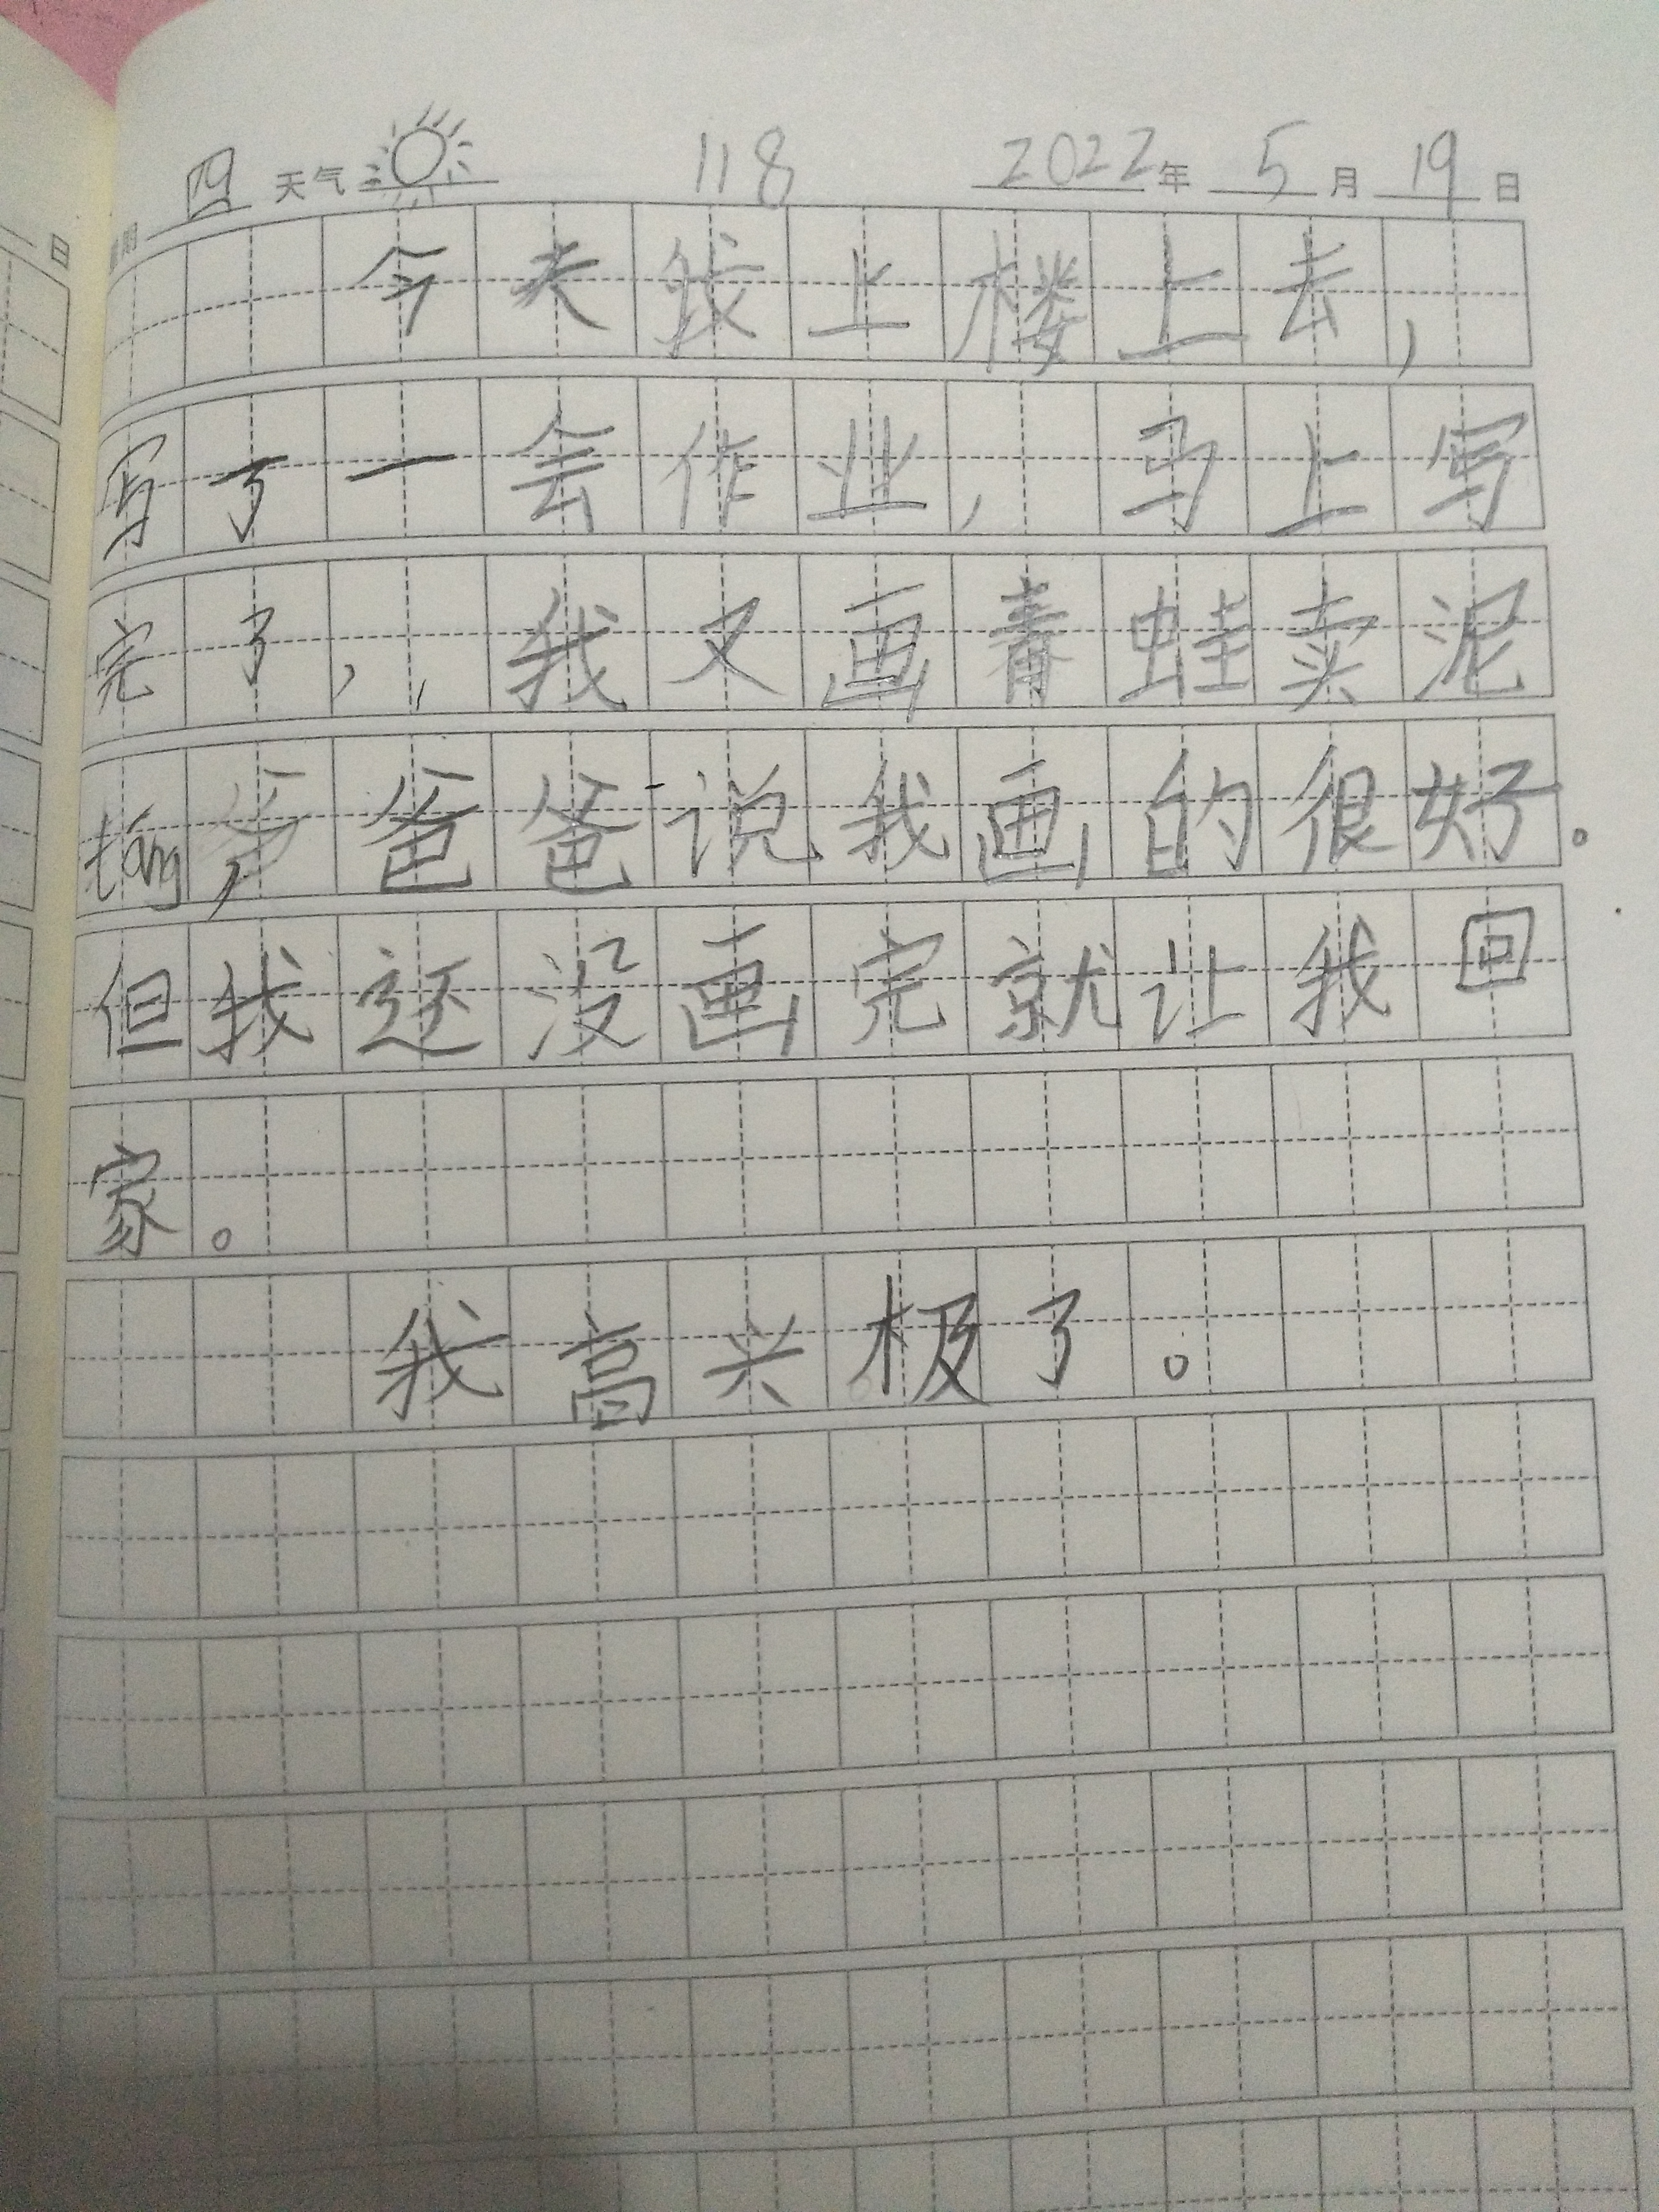 星期 四 天气 118 2022年 5月 19日
今天我上楼上去，
写了一会作业，马上写
完了，，我又画青蛙卖泥
táng，爸爸说我画的很好。
但我还没画完就让我回
家。
我高兴极了。
日